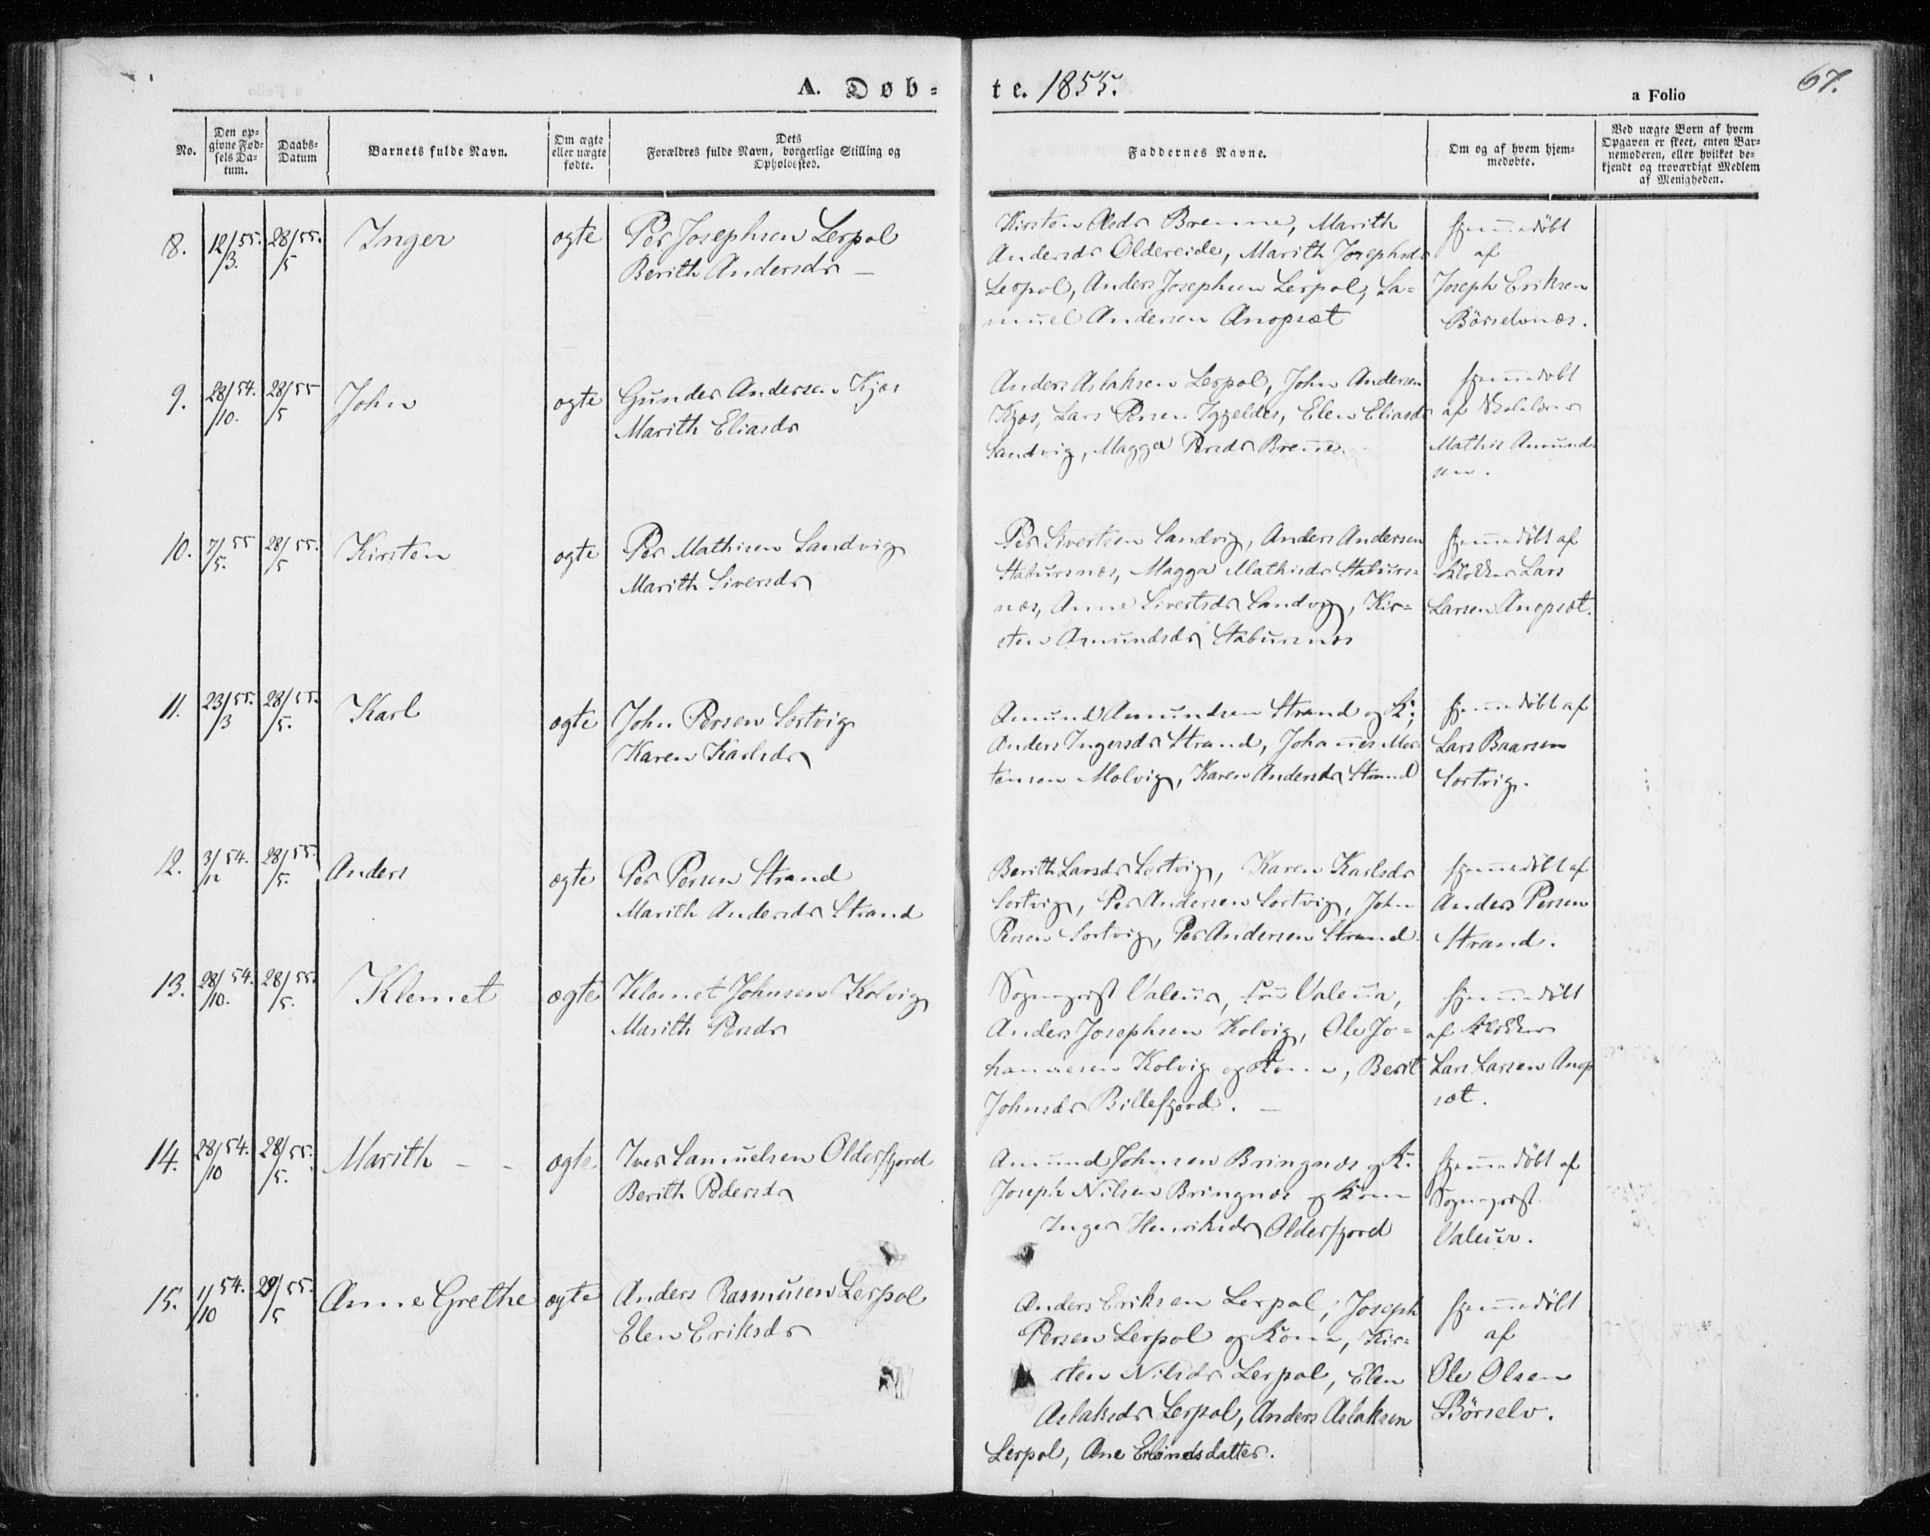 A. Døb-
te. 1855.
a Folio
67.
No.
Den op-
givne Fød-
sels Da-
tum.
Daabs-
Datum
Barnets fulde Navn.
Om ægte
eller uægte
fødte.
Dets
Forældres fulde Navn, borgerlige Stilling og
Opholdssted.
Faddernes Navne.
Om og af hvem hjem-
medøbte.
Ved uægte Born af hvem
Opgaven er skeet, enten Bar-
nemoderen, eller hvilket be-
kjendt og troværdigt Medlem
af Menigheden.
8. 12/3 55. 28/5 55. Inger ægte
Per Josephsen Lerpol
Berith Andersdr —
Kirsten Brenne, Marith
Andersdr Oldereide, Marith Josephsdr
Lerpol, Anders Josephsen Lerpol, Sa-
muel Andersen Anopsæt
hjemmedöbt
af
Joseph Eriksen
Börselvnæs.
9. 28/10. 54. 28/5 55 John ægte
Gunder Andersen Kjæs
Marith Eliasdr
Anders Aslaksen Lerpol, John Andersen
Kjæs, Lars Persen, Elen Eliasdr
Sandvig, Magga Persdr Brenne.
hjemmedöbt
af Skolelærer
Mathis Amund-
sen.
10. 7/5. 55 28/5 55. Kirsten ægte
Per Mathisen Sandvig
Marith Siversdr
Per Sivertsen Sandvig, Anders Andersen
Stabursnæs, Magga Mathisdr Staburs-
næs, Anne Sivertsdr Sandvig, Kir-
sten Amundsdr Stabursnæs
hjemmedöbt af
Klokker Lars
Larsen Anopsæt.
11. 23/3 55. 28/5. 55. Karl ægte
John Persen Sortvig
Karen Karlsdr
Amund Amundsen Strand og K.,
Anders Ingersdr Strand, Johannes Mor-
tensen Molvig, Karen Andersdr Strand
hjemmedöbt af
Lars Baarsen
Sortvig.
12. 3/12 54. 28/5. 55. Anders ægte
Per Persen Strand
Marith Andersdr Strand
Berith Larsdr Sortvig, Karen Karlsdr
Sortvig, Per Andersen Sortvig, John
Persen Sortvig, Per Andersen Strand
hjemmedöbt af
Anders Persen
Strand.
13. 28/10. 54. 28/5. 55. Klemet ægte
Klemet Johnsen Kolvig
Marith Persdr
Sogneprst Valeur, Valeur,
Anders Josephsen Kolvig, Ole Jo-
hannesen Kolvig og Kone, Berit
Johnsdr Billefjord. —
hjemmedöbt
af Klokker
Lars Larsen Anop
sæt.
14. 28/10 54. 28/5. 55. Marith - - ægte
Iver Samuelsen Olderfjord
Berith Pedersdr
Amund Johnsen Bringnæs og K.
Joseph Nilsen Bringnæs og Kone
Inger Henriksdr Olderfjord
hjemmedöbt af
Sogneprst
Valeur.
15. 1/10 54. 29/5 55. Anne Grethe ægte
Anders Rasmusen Lerpol
Elen Eriksdr
Anders Eriksen Lerpol, Joseph
Persen Lerpol og Kone, Kir-
sten Nilsdr Lerpol, Elen
Aslaksdr Lerpol, Anders Aslaksen
Lerpol, Ane Erlandsdatter.
hjemmedöbt
af
Ole Olsen
Börselv.